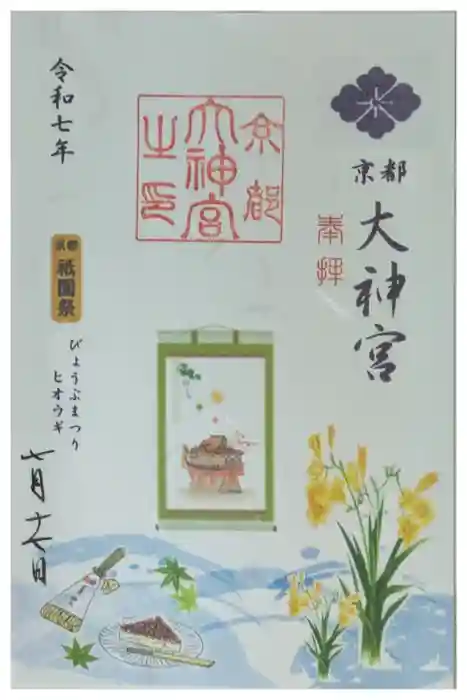 京都
大神宮
奉拝
京都
大神宮
之印
令和七年
京都
祇園祭
びょうぶまつり
ヒオウギ
七月十六日